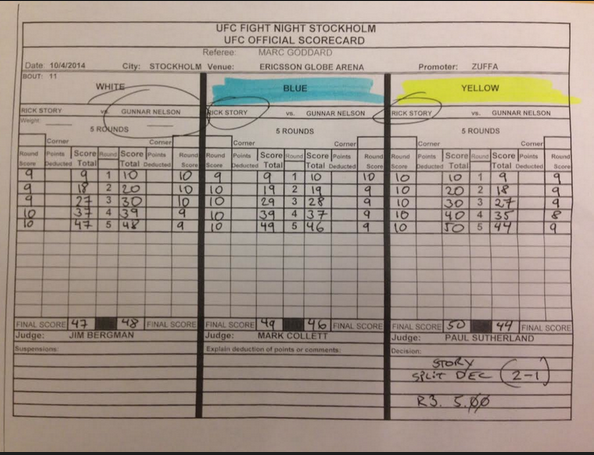 UFC FIGHT NIGHT STOCKHOLM
UFC OFFICIAL SCORECARD
Referee: MARC GODDARD
Date: 10/4/2014 City: STOCKHOLM Venue: ERICSSON GLOBE ARENA Promoter: ZUFFA
BOUT: 11
WHITE BLUE YELLOW
RICK STORY vs. GUNNAR NELSON RICK STORY vs. GUNNAR NELSON RICK STORY vs. GUNNAR NELSON
Weight:
5 ROUNDS 5 ROUNDS 5 ROUNDS
Corner Corner Corner Corner Corner Corner
Round Score Points Deducted Score Total Round Score Total Points Deducted Round Score Round Score Points Deducted Score Total Round Score Total Points Deducted Round Score Round Score Points Deducted Score Total Round Score Total Points Deducted Round Score
9 9 1 10 10 9 9 1 10 10 10 10 1 9 9
9 18 2 20 10 10 19 2 19 9 10 20 2 18 9
9 27 3 30 10 10 29 3 28 9 10 30 3 27 9
10 37 4 39 9 10 39 4 37 9 10 40 4 35 8
10 47 5 48 9 10 49 5 46 9 10 50 5 44 9
FINAL SCORE 47 48 FINAL SCORE FINAL SCORE 49 46 FINAL SCORE FINAL SCORE 50 44 FINAL SCORE
Judge: JIM BERGMAN Judge: MARK COLLETT Judge: PAUL SUTHERLAND
Suspensions: Explain deduction of points or comments: Decision:
STORY
SPLIT DEC (2-1)
R3. 5.00